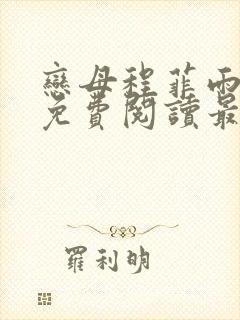 戀母程菲雨
免費閱讀最
羅利明